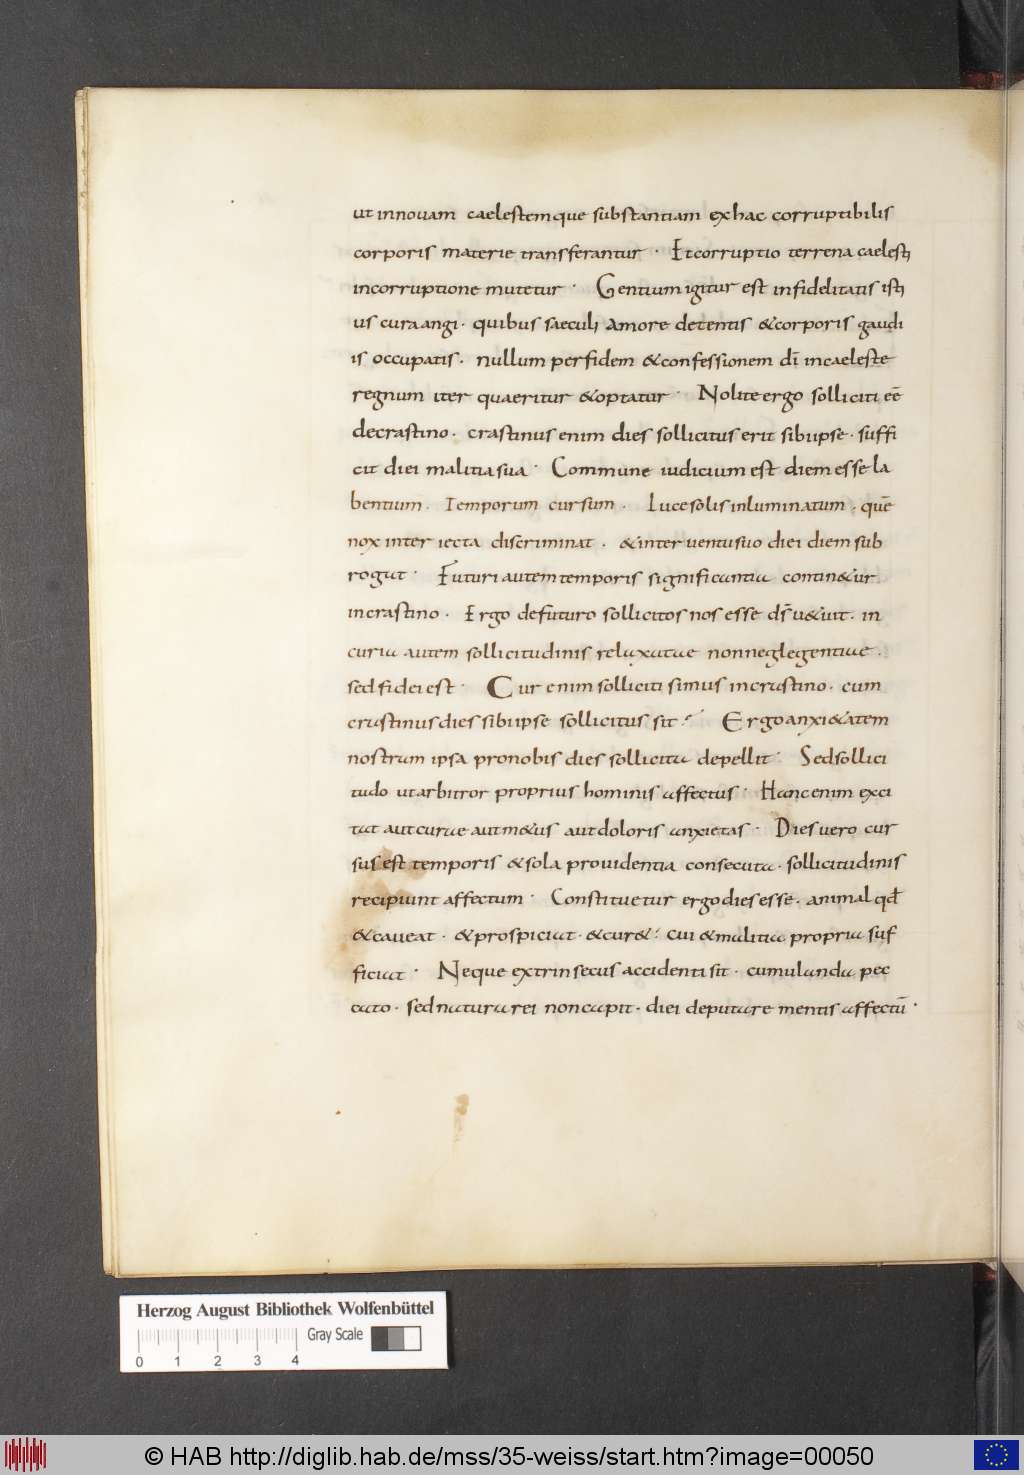 ut innouam caelestemque substantiam exhac corruptibilis
corporis materie transferantur · Et corruptio terrena caelesti
incorruptione mutetur · Gentium igitur est infidelitatis isti
us cura angi · quibus saeculi amore detentis &corporis gaudi
is occupatis · nullum perfidem &confessionem dī incaeleste
regnum iter quaeritur &optatur · Nolite ergo solliciti eē
decrastino · crastinus enim dies sollicitus erit sibiipse · suffi
cit diei malitia sua · Commune iudicium est diem esse la
bentium · Temporum cursum · Luce solis inluminatum · quē
nox inter iecta discriminat · &inter uentusuo diei diem sub
rogat · Futuri autem temporis significantia contin&ur
incrastino · Ergo defuturo sollicitos nos esse ds̄ u&uit · in
curia autem sollicitudinis relaxatae non neglegentiae ·
sed fidei est · Cur enim solliciti simus incrastino · cum
crastinus dies sibiipse sollicitus sit? Ergo anxi&atem
nostram ipsa pronobis dies sollicita depellit · Sed sollici
tudo ut arbitror proprius hominis affectus · Hanc enim exci
tat aut curae aut m&us aut doloris anxietas · Dies uero cur
sus est temporis &sola prouidentia consecuta · sollicitudinis
recipiunt affectum · Constituetur ergo dies esse · animal qd̄
&caueat · &prospiciat · &cur&? cui &malitia propria suf
ficiat · Neque extrinsecus accidenti sit · cumulanda pec
cato · sed natura rei non capit · diei deputare mentis affectū ·
Herzog August Bibliothek Wolfenbüttel
Gray Scale
0 1 2 3 4
© HAB http://diglib.hab.de/mss/35-weiss/start.htm?image=00050